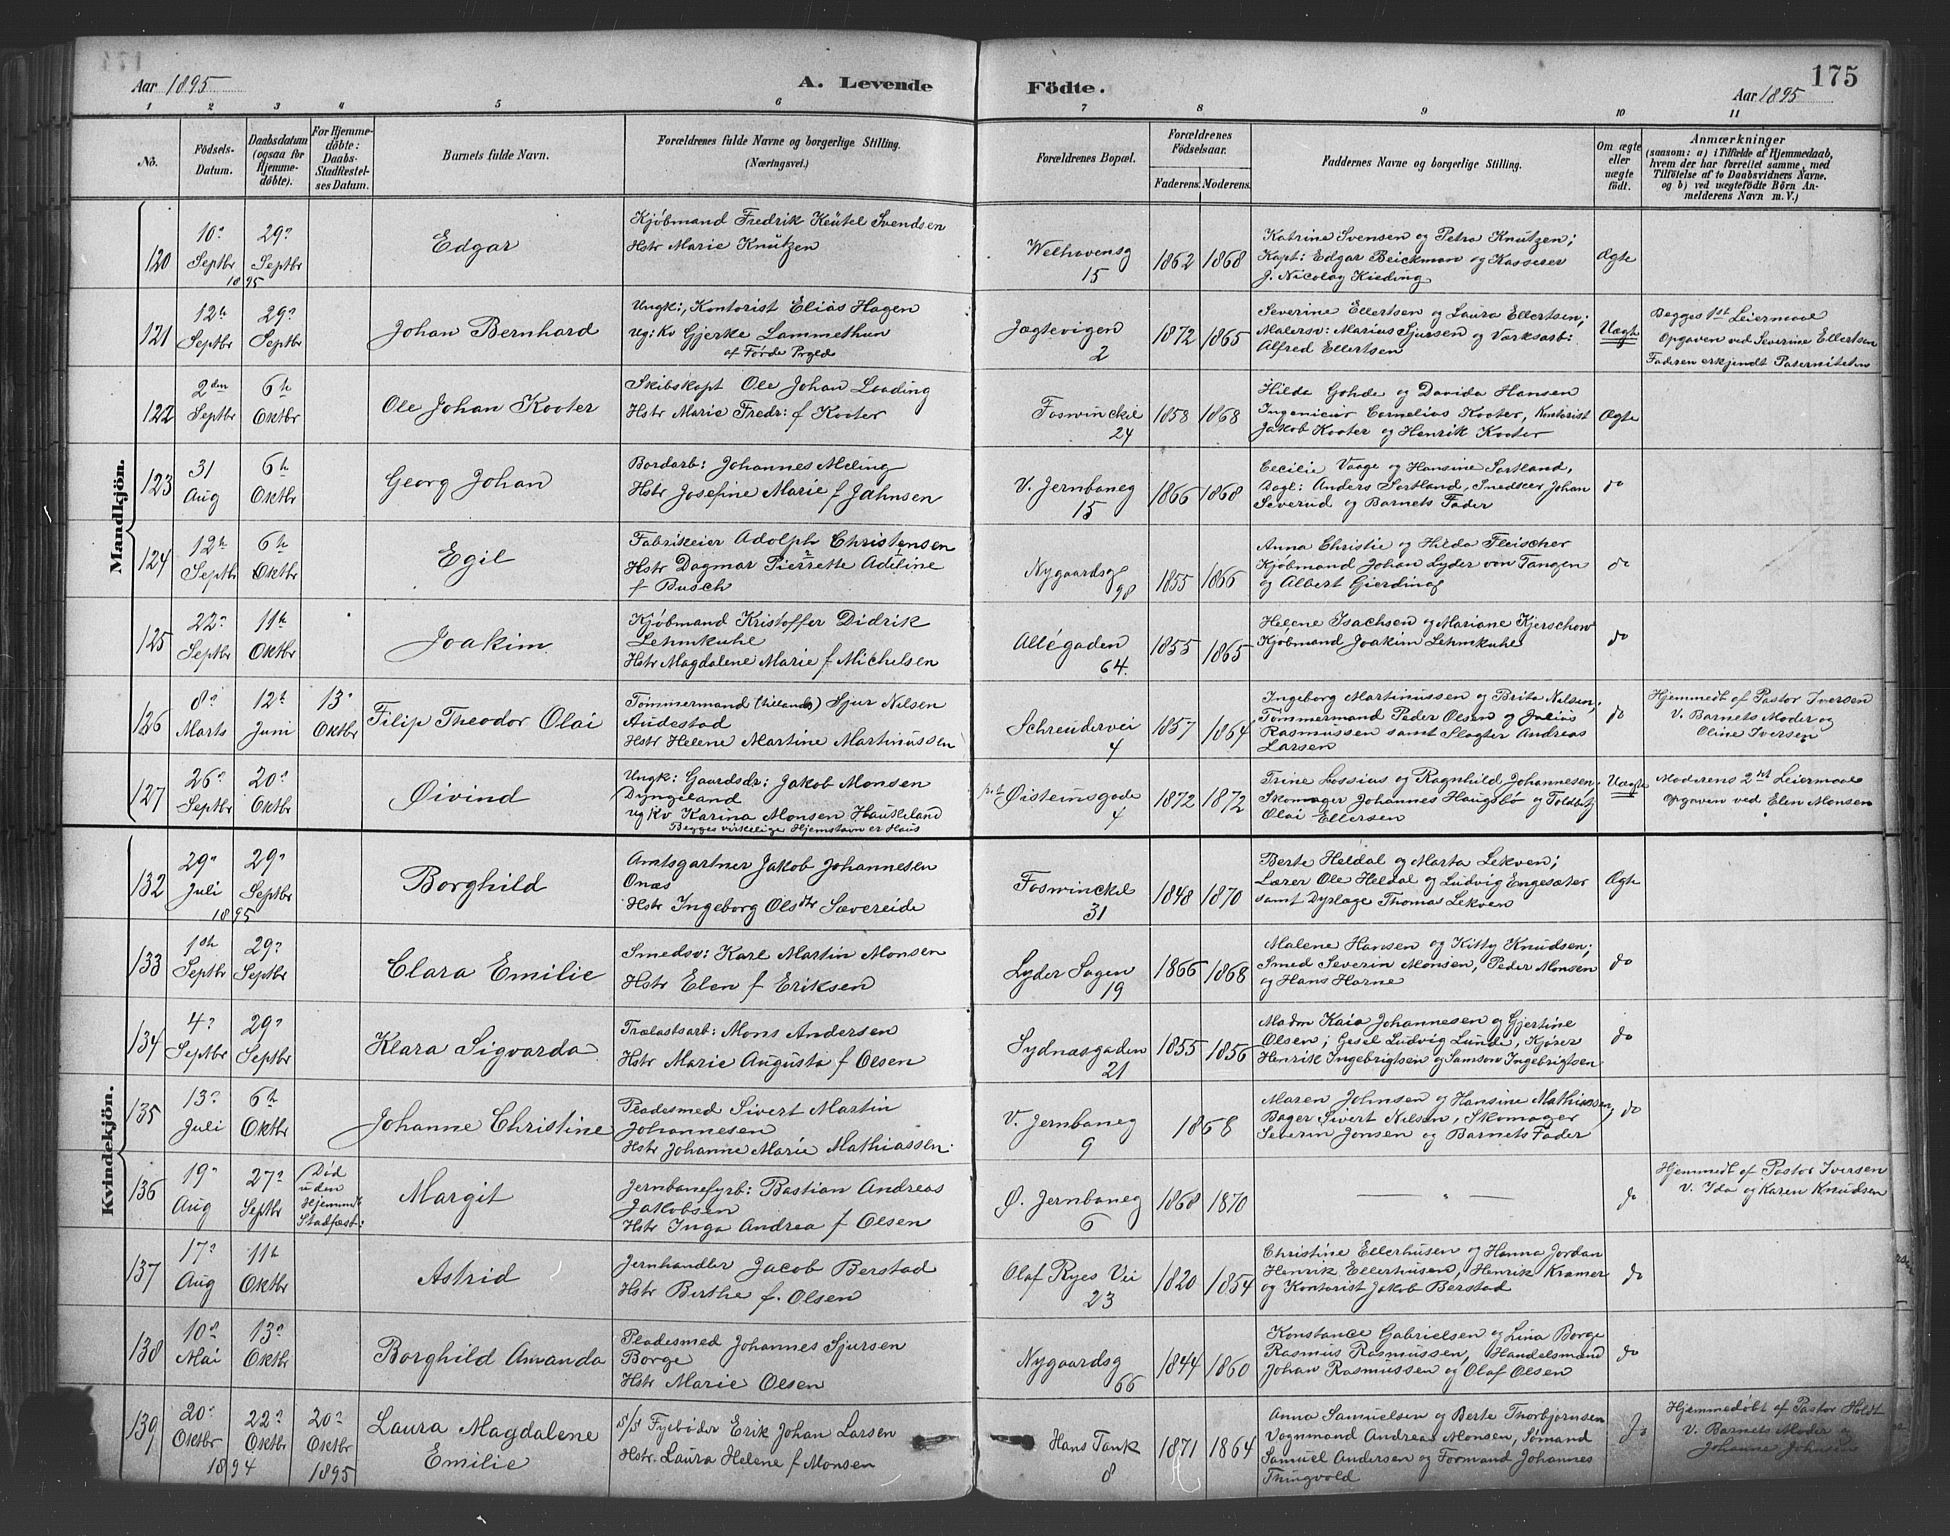 Aar 1895
A. Levende
Födte.
175
Aar 1895
1 2 3 4 5 6 7 8 9 10 11
No.
Födsels-Datum.
Daabsdatum (ogsaa for Hjemme-döbte).
For Hjemme-döbte: Daabs-Stadfæstel-ses Datum.
Barnets fulde Navn.
Forældrenes fulde Navne og borgerlige Stilling.
(Næringsvei.)
Forældrenes Bopæl.
Forældrenes Födselsaar.
Faderens. Moderens.
Faddernes Navne og borgerlige Stilling.
Om ægte eller uægte födt.
Anmærkninger
(saasom: a) i Tilfælde af Hjemmedaab,
hvem der har forrettet samme, med
Tilföielse af to Daabsvidners Navne.
og b) ved uægtefödte Börn An-
melderens Navn m. V.)
Mandkjön.
120
10de Septbr 1895
29de Septbr
Edgar
Kjøbmand Fredrik Keütel Svendsen
Hstr Marie Knützen
Welhavensg 15
1862 1868
Katrine Svensen og Petra Knützen;
Kapt: Edgar Beickman og Kasserer
J. Nicolay Kieding
Ægte
121
12te Septbr
29de Septbr
Johan Bernhard
Ungk:, Kontorist Elias Hagen
Ug: Kv Gjerke Lammethun
af Førde Prgld
Jægtevigen 2
1872 1865
Severine Ellertsen og Laura Ellertsen;
Malersv: Marius Sjursen og Værksarb:
Alfred Ellertsen
Uægte
Begges 1st Leiermaal
Opgaven ved Severine Ellertsen
Faderen erkjendt Paterniteten
122
2den Septbr
6te Oktbr
Ole Johan Kooter
Skibskapt Ole Johan Loading
Hstr Marie Fredr: f Kooter
Foswinckil 24
1858 1868
Hilda Gohde og Davida Hansen
Ingenieur Cornelius Kooter, Kontorist
Jakob Kooter og Henrik Kooter
Ægte
123
31 Aug
6te Oktbr
Georg Johan
Bordarb: Johannes Meling
Hstr Josefine Marie f Jahnsen
V. Jernbaneg 15
1866 1868
Cecilie Vaage og Hansine Sortland,
Dagl: Anders Sortland, Snedker Johan
Severud og Barnets Fader
do
124
12te Septbr
6te Oktbr
Egil
Fabrikeier Adolph Christensen
Hstr Dagmar Pierrette Adeline
f Busch
Nygaardsg 98
1855 1866
Anna Christie og Hilda Fleischer
Kjøbmand Johan Lyder von Tangen
og Albert Gierding
do
125
22de Septbr
11te Oktbr
Joakim
Kjøbmand Kristoffer Didrik
Lehmkuhl
Hstr Magdalene Marie f Michelsen
Allégaden 64.
1855 1865
Helene Isachsen og Mariane Kjerschow
Kjøbmand Joakim Lehmkuhl
do
126
8de Marts
12te Juni
13de Oktbr
Filip Theodor Olai
Tømmermand (tillands) Sjur Nilsen
Audestad
Hstr Helene Martine Martinussen
Schreudervei 4
1857 1864
Ingeborg Martinussen og Brita Nilsen;
Tømmermand Peder Olsen og Julius
Rasmussen samt Slagter Andreas
Larsen
do
Hjemmedt af Pastor Iversen
V. Barnets Moder og
Oline Iversen
127
26de Septbr
20de Oktbr
Øivind
Ungk: Gaardsdr: Jakob Monsen
Dyngeland
Ug Kv Karina Monsen Haukeland
Begges virkelige Hjemstavn er Haus
Øisteinsgade 4
1872 1872
Trine Lossius og Ragnhild Johannesen,
Skomager Johannes Haugsbø og Toldbtj
Olai Ellersen
Uægte
Moderens 2det Leiermaal
Opgaven ved Elen Monsen
Kvindekjön.
132
29de Juli 1895
29de Septbr
Borghild
Amtsgartner Jakob Johannesen
Onæs
Hstr Ingeborg Olsdtr Sævereide
Foswinckel 31
1848 1870
Berte Heldal og Marta Lekven;
Lærer Ole Heldal og Ludvig Engesæter
samt Dyrlæge Thomas Lekven
Ægte
133
1ste Septbr
29de Septbr
Clara Emilie
Smedsv: Karl Martin Monsen
Hstr Elen f Eriksen
Lyder Sagen 19
1866 1868
Malene Hansen og Kitty Knudsen;
Smed Severin Monsen, Peder Monsen
og Hans Horne
do
134
4de Septbr
29de Septbr
Klara Sigvarda
Trælastarb: Mons Andersen
Hstr Marie Augusta f Olsen
Sydnæsgaden 21
1855 1856
Madm Kaia Johannesen og Gjertine
Olsen; Gesel Ludvig Lunde, Kjører
Henrik Ingebrigtsen og Samson Ingebrigtsen
do
135
13de Juli
6te Oktbr
Johanne Christine
Pladesmed Sivert Martin
Johannesen
Hstr Johanne Marie Mathiassen.
V. Jernbaneg 9
1868
Maren Johnsen og Hansine Mathiassen,
Bager Sivert Nilsen, Skomager
Severin Jonsen og Barnets Fader
do
136
19de Aug
27de Septbr
Død uden Hjemmd: Stadfæst:
Margit
Jernbanefyrb: Bastian Andreas
Jakobsen
Hstr Inga Andrea f Olsen
Ø. Jernbaneg 6
1868 1870
— " —
do
Hjemmedt af Pastor Iversen
V. Ida og Karen Knudsen
137
17de Aug
11te Oktbr
Astrid
Jernhandler Jacob Berstad
Hstr Birthe f. Olsen
Olaf Ryes Vei 23
1820 1854
Christine Ellerhusen og Hanna Jordan
Henrik Ellerhusen, Henrik Kramer
og Kontorist Jakob Berstad
do
138
10de Mai
13de Oktbr
Borghild Amanda
Pladesmed Johannes Sjursen
Borge
Hstr Marie Olsen
Nygaardsg 66
1844 1860
Konstance Gabrielsen og Lina Borge
Rasmus Rasmussen, Handelsmand
Johan Rasmussen og Olaf Olsen
do
139
20de Oktbr 1894
22de Oktbr
20de Oktbr 1895
Laura Magdalene
Emilie
S/S Fyrbøder Erik Johan Larsen
Hstr. Laura Helene f Monsen
Hans Tank 8
1871 1864
Anna Samuelsen og Berte Thorbjørnsen
Vognmand Andreas Monsen, Sømand
Samuel Andersen og Formand Johannes
Thingvold
do
Hjemmedøbt af Pastor Holdt
V. Barnets Moder og
Johanne Johnsen